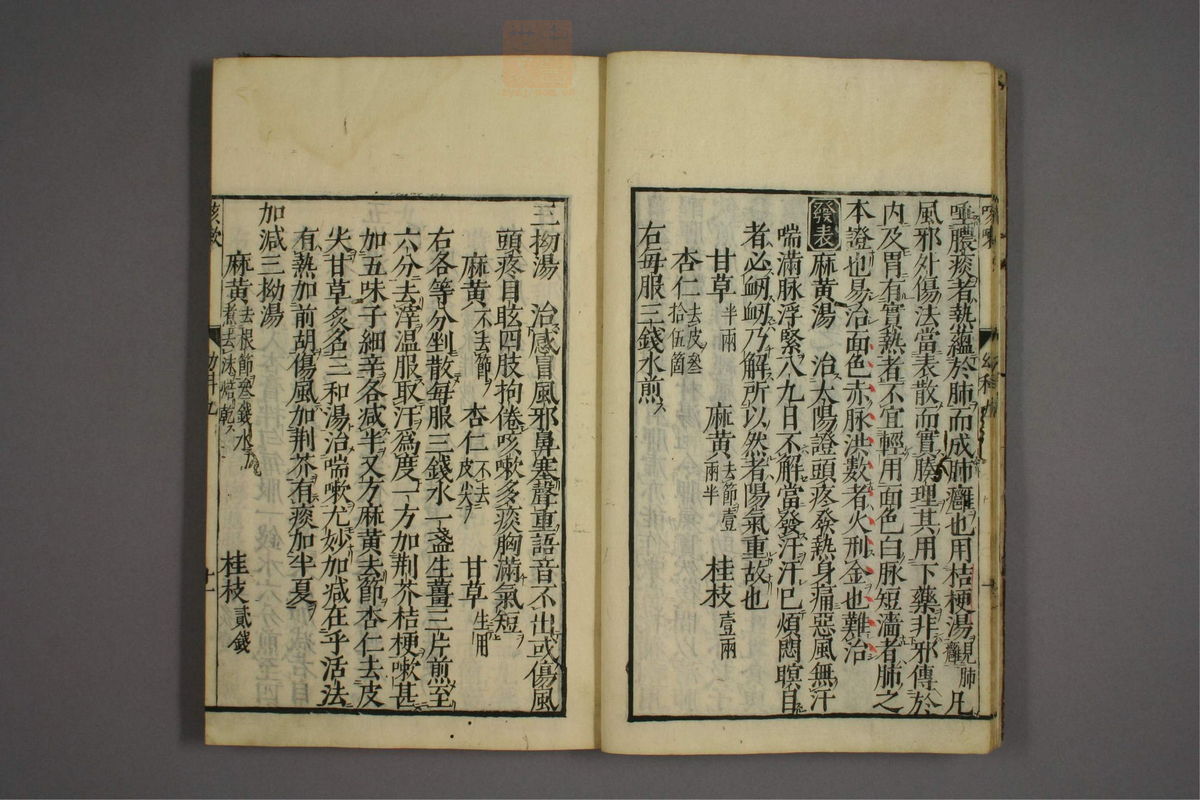 唾膿痰者熱蘊於肺而成肺癰也用桔梗湯見肺癰凡
風邪外傷法當表散而實腠理其用下藥非邪傳於
内及胃有實熱者不宜輕用面色白脉短濇者肺之
本證也易治面色赤脉洪數者火刑金也難治
發表麻黃湯 治太陽證頭疼發熱身痛惡風無汗
喘滿脉浮緊八九日不解當發汗汗已煩悶瞑目
者必衂衂乃解所以然者陽氣重故也
甘草半兩 麻黃去節壹兩半 桂枝壹兩
杏仁去皮叄拾伍箇
右每服三錢水煎
三拗湯 治感冒風邪鼻塞聲重語音不出或傷風
頭疼目眩四肢拘倦咳嗽多痰胸滿氣短
麻黃不去節 杏仁不去皮尖 甘草生用
右各等分剉散每服三錢水一盞生薑三片煎至
六分去滓温服取汗爲度一方加荆芥桔梗嗽甚
加五味子細辛各减半又方麻黃去節杏仁去皮
尖甘草炙名三和湯治喘嗽尤妙加减在乎活法
有熱加前胡傷風加荆芥有痰加半夏
加减三拗湯
麻黃去根節叄錢水煮去沫焙乾 桂枝貳錢
咳嗽 幼科五 十一